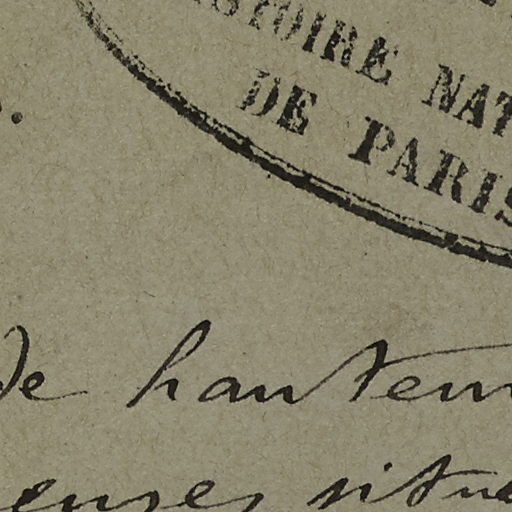 STOIRE NAT
DE PARIS
de hauteur
situe